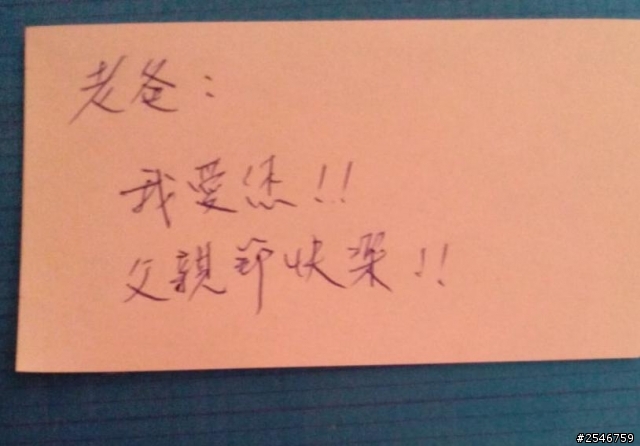 老爸：
我愛您!!
父親節快樂!!
#2546759